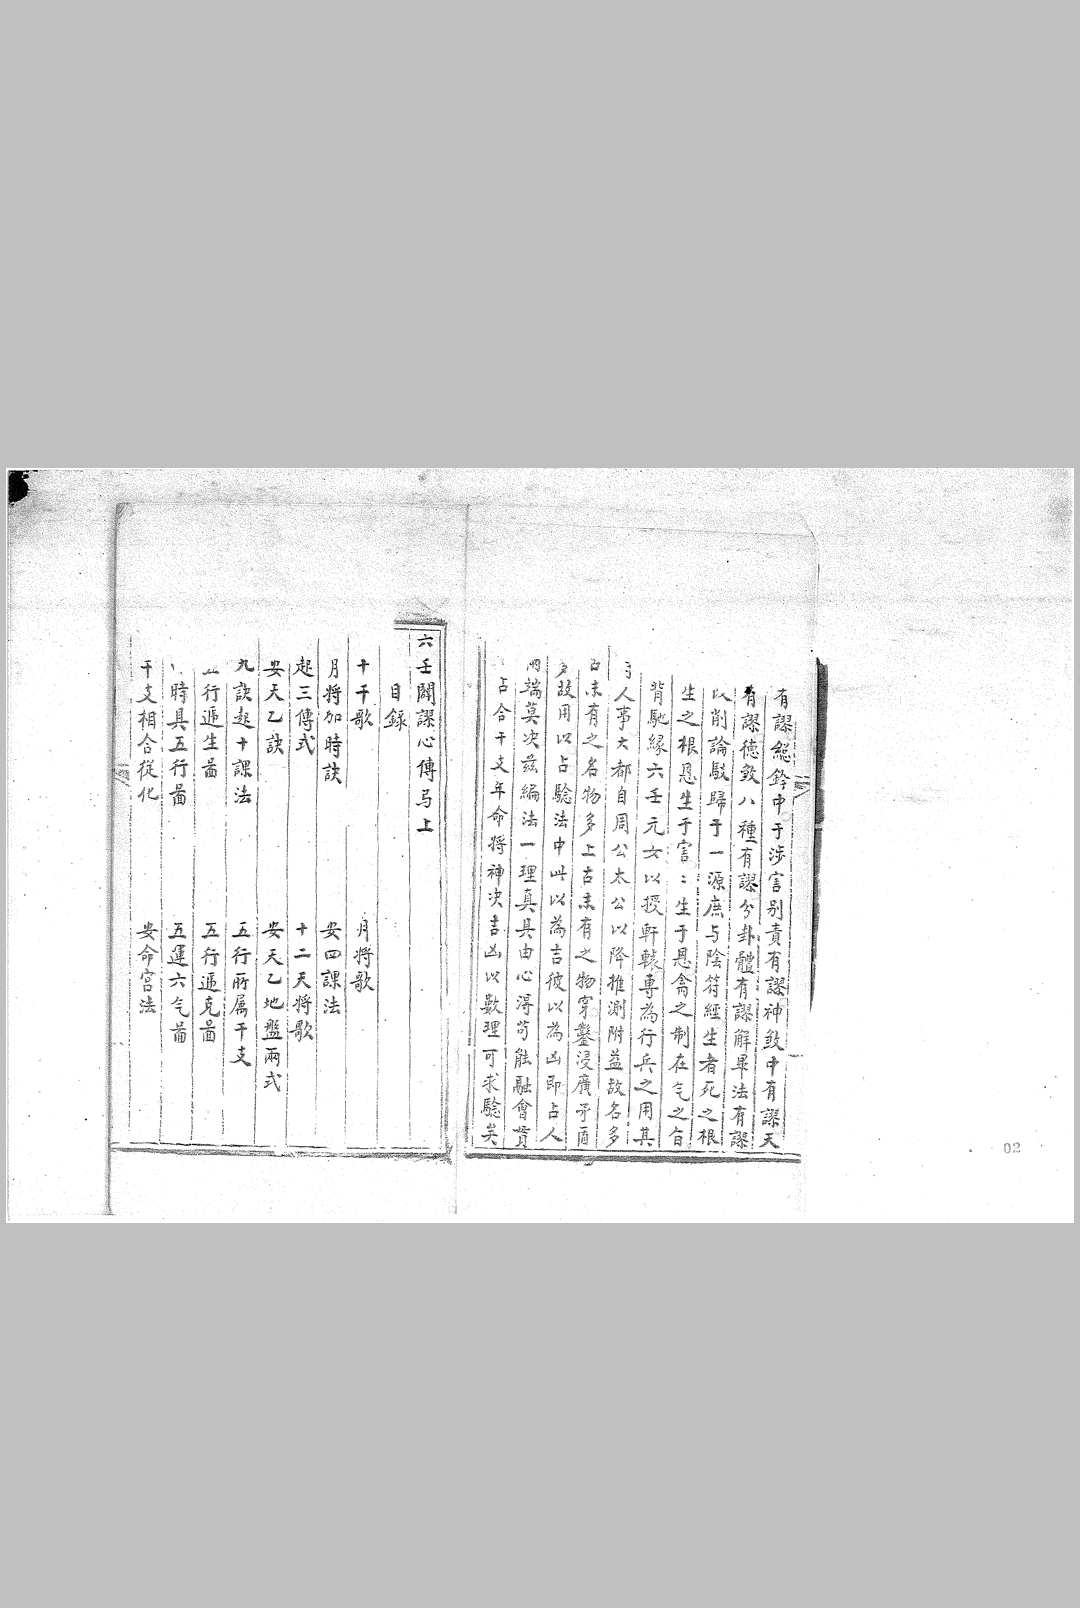 有謬總鈐中于涉害别責有謬神煞中有謬天
有謬德煞八種有謬分卦體有謬解畢法有謬
以削論駁歸于一源庶与陰符經生者死之根
生之根恩生于害:生于恩禽之制在气之旨
背馳緣六壬元女以授軒轅專為行兵之用其
人事大都自周公太公以降推測附益故名多
古未有之名物多上古未有之物穿鑿浸廣矛盾
多故用以占驗法中此以為吉彼以為凶即占人
兩端莫决兹編法一理真具由心得苟能融會貫
占合干支年命将神决吉凶以數理可求驗矣
六壬闢謬心傳弓上
目錄
十干歌 月將歌
月將加時訣 安四課法
起三傳式 十二天將歌
安天乙訣 安天乙地盤兩式
九訣起十課法 五行所属干支
五行遞生啚 五行遞克啚
時具五行啚 五運六气啚
干支相合從化 安命宫法
02